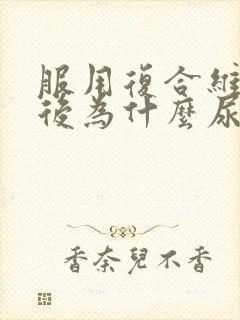 服用復合維
後為什麼尿
香奈兒不香